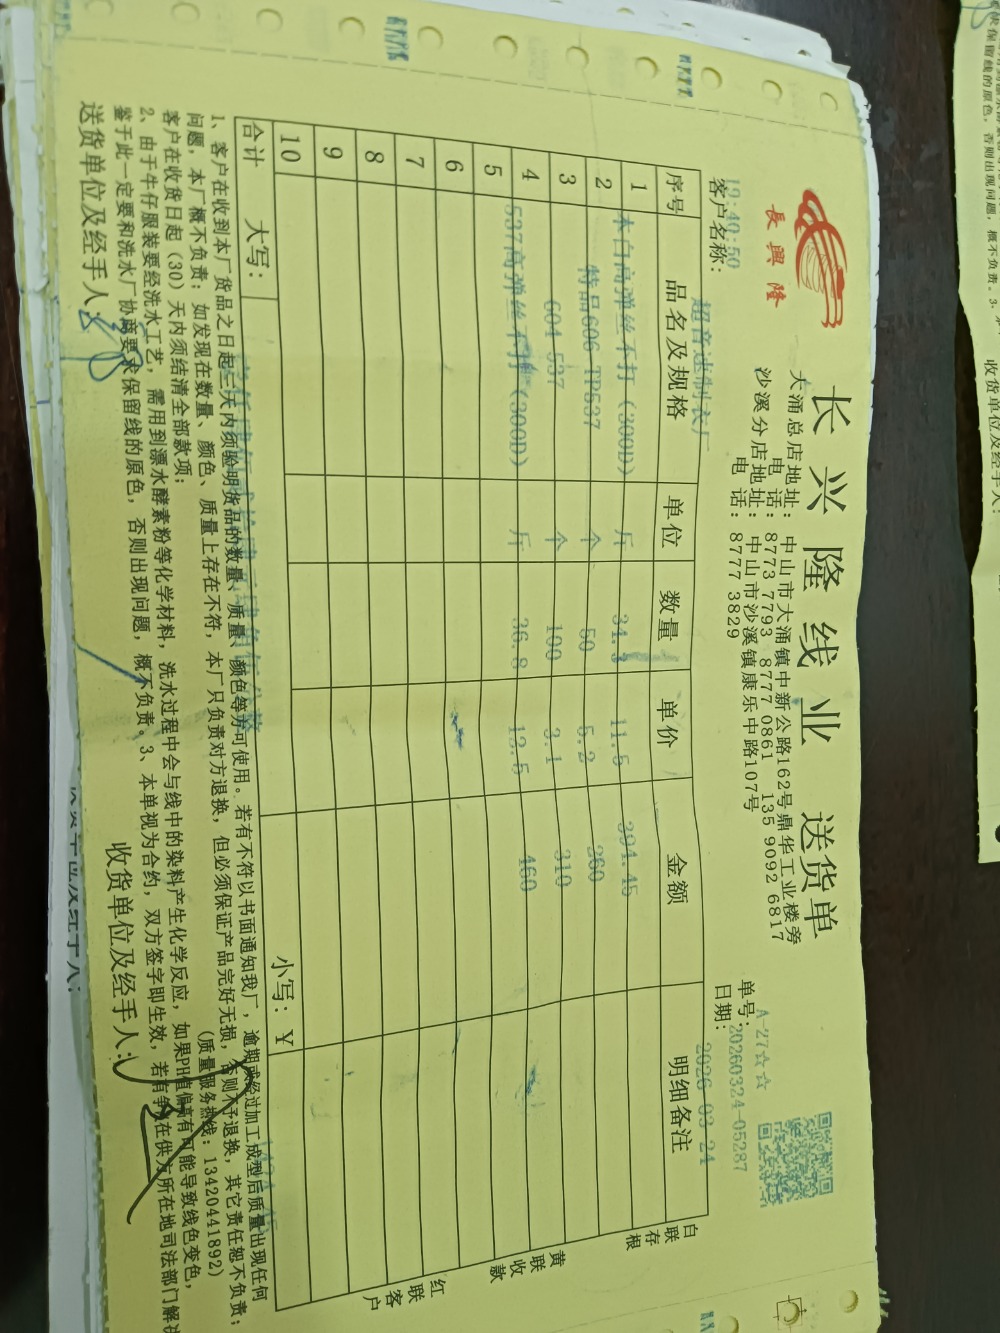 長興隆
长兴隆线业 送货单
大涌总店地址：中山市大涌镇中新公路162号鼎华工业楼旁
电话：8773 7793 8777 0861 135 9092 6817
沙溪分店地址：中山市沙溪镇康乐中路107号
电话：8777 3829
A-27☆☆
单号：20260324-05287
日期：2026-03-24
19:40:50
客户名称：超音速制衣厂
序号 品名及规格 单位 数量 单价 金额 明细备注
1 本白高弹丝不打（300D） 斤 34.3 11.5 394.45
2 特品606 TP537 个 50 5.2 260
3 604 537 个 100 3.1 310
4 537高弹丝不打（300D） 斤 36.8 12.5 460
5
6
7
8
9
10
合计 大写： 小写：￥
白联存根
黄联收款
红联客户
1、客户在收到本厂货品之日起三天内须验明货品的数量、质量、颜色等方可使用。若有不符以书面通知我厂，逾期或经过加工成型后质量出现任何
问题，本厂概不负责；如发现在数量、颜色、质量上存在不符，本厂只负责对方退换，但必须保证产品完好无损，否则不予退换，其它责任恕不负责；
客户在收货日起（30）天内须结清全部款项； （质量服务热线：13420441892）
2、由于牛仔服装要经洗水工艺，需用到漂水酵素粉等化学材料，洗水过程中会与线中的染料产生化学反应，如果PH值偏高有可能导致线色变色，
鉴于此一定要和洗水厂协商要求保留线的原色，否则出现问题，概不负责。3、本单视为合约，双方签字即生效，若有争议在供方所在地司法部门解决
送货单位及经手人： 收货单位及经手人：